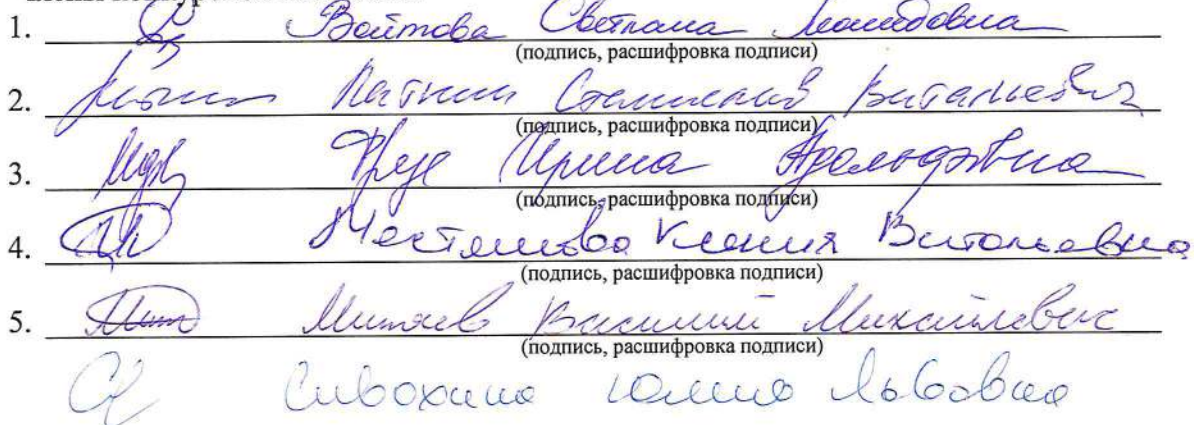 1. Войтова Светлана Леонидовна
(подпись, расшифровка подписи)
2. Станислав Витальевич
(подпись, расшифровка подписи)
3. Ирина Адольфовна
(подпись, расшифровка подписи)
4. Ксения Витальевна
(подпись, расшифровка подписи)
5. Василий Михайлович
(подпись, расшифровка подписи)
Сивохина Юлия Львовна